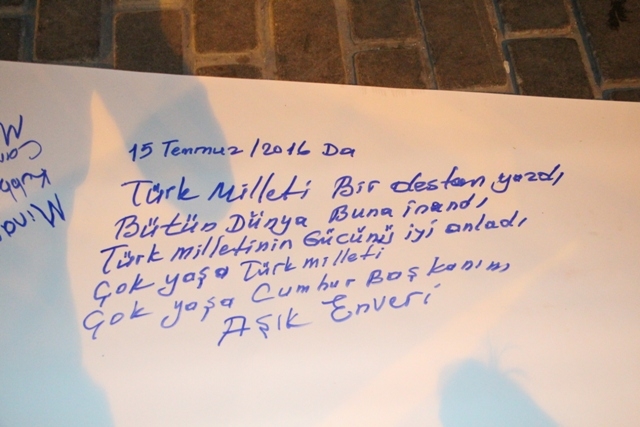 15 Temmuz/2016 Da
Türk Milleti Bir destan yazdı
Bütün Dünya Buna inandı
Türk milletinin Gücünü iyi anladı
Çok yaşa Türk milleti
Çok yaşa Cumhur Başkanım
Aşık Enveri
Mina
Kubb
Ca
M